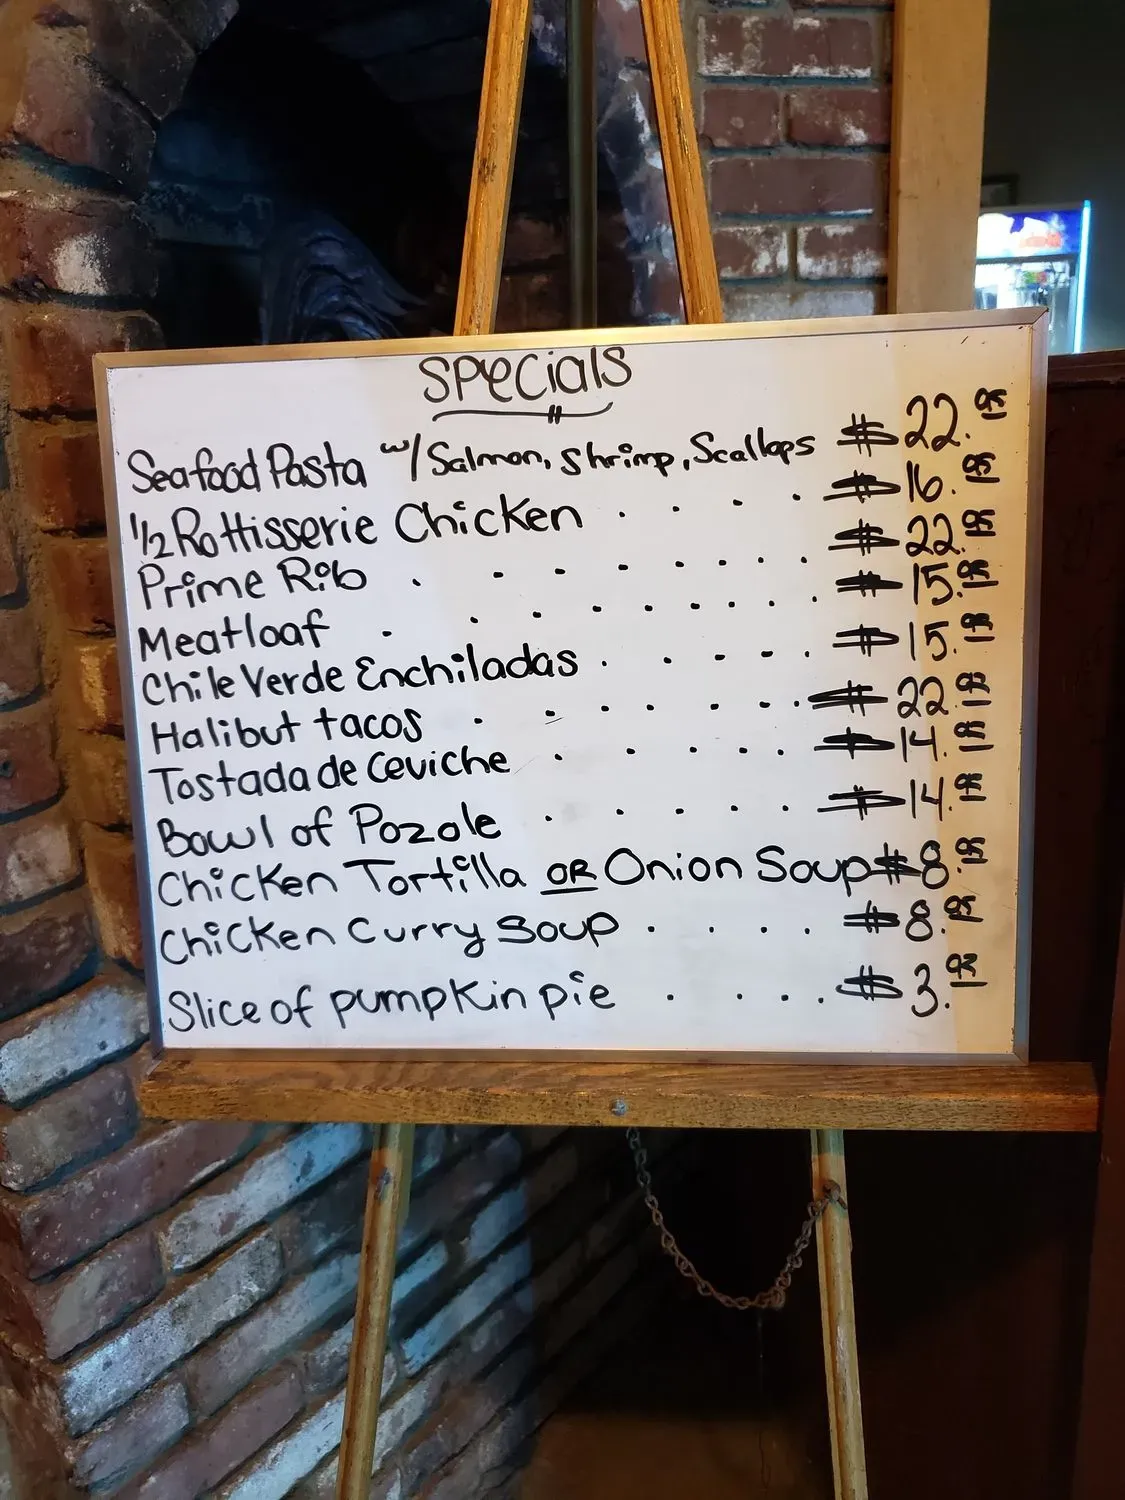 Specials
Seafood Pasta w/ Salmon, Shrimp, Scallops $22.95
1/2 Rottisserie Chicken . . . . $16.95
Prime Rib . . . . . . . . $22.95
Meatloaf . . . . . . . . $15.95
Chile Verde Enchiladas . . . . . $15.95
Halibut tacos . . . . . . . $22.95
Tostada de Ceviche . . . . . $14.95
Bowl of Pozole . . . . . $14.95
Chicken Tortilla OR Onion Soup $8.95
Chicken Curry Soup . . . . $8.95
Slice of pumpkin pie . . . . $3.